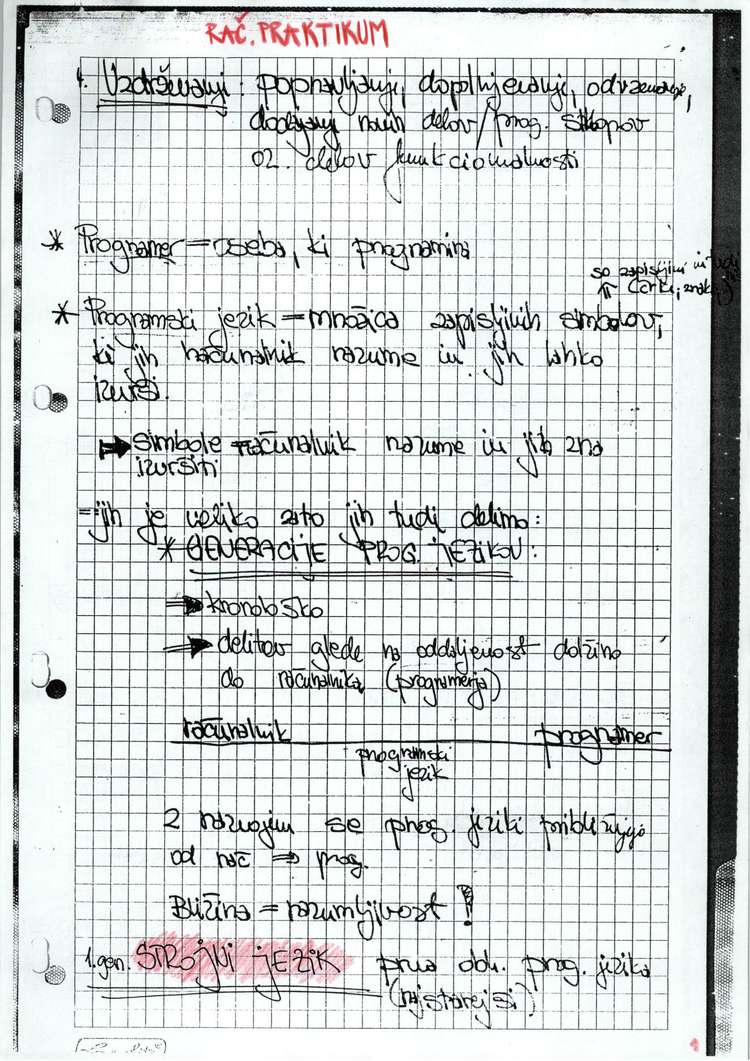 RAČ. PRAKTIKUM
Vzdrževanje: popravljanje, dopolnjevanje, odvzemanje,
dodajanje novih delov/prog. sklopov
oz. delov funkcionalnosti
* Programer = oseba, ki programira
so zapisljivi in tudi
(črke, znaki)
* Programski jezik = množica zapisljivih simbolov,
ki jih računalnik razume in jih lahko
izvrši.
➡ simbole računalnik razume in jih zna
izvršiti
= jih je veliko zato jih tudi delimo:
* GENERACIJE PROG. JEZIKOV:
➡ kronološko
➡ delitev glede na oddaljenost dolžino
do računalnika (programerja)
računalnik programer
programski
jezik
Z razvojem se prog. jeziki približujejo
od rač ⇒ prog.
Bližina = razumljivost !
1. gen. STROJNI JEZIK prva obl. prog. jezika
(najstarejši)
1